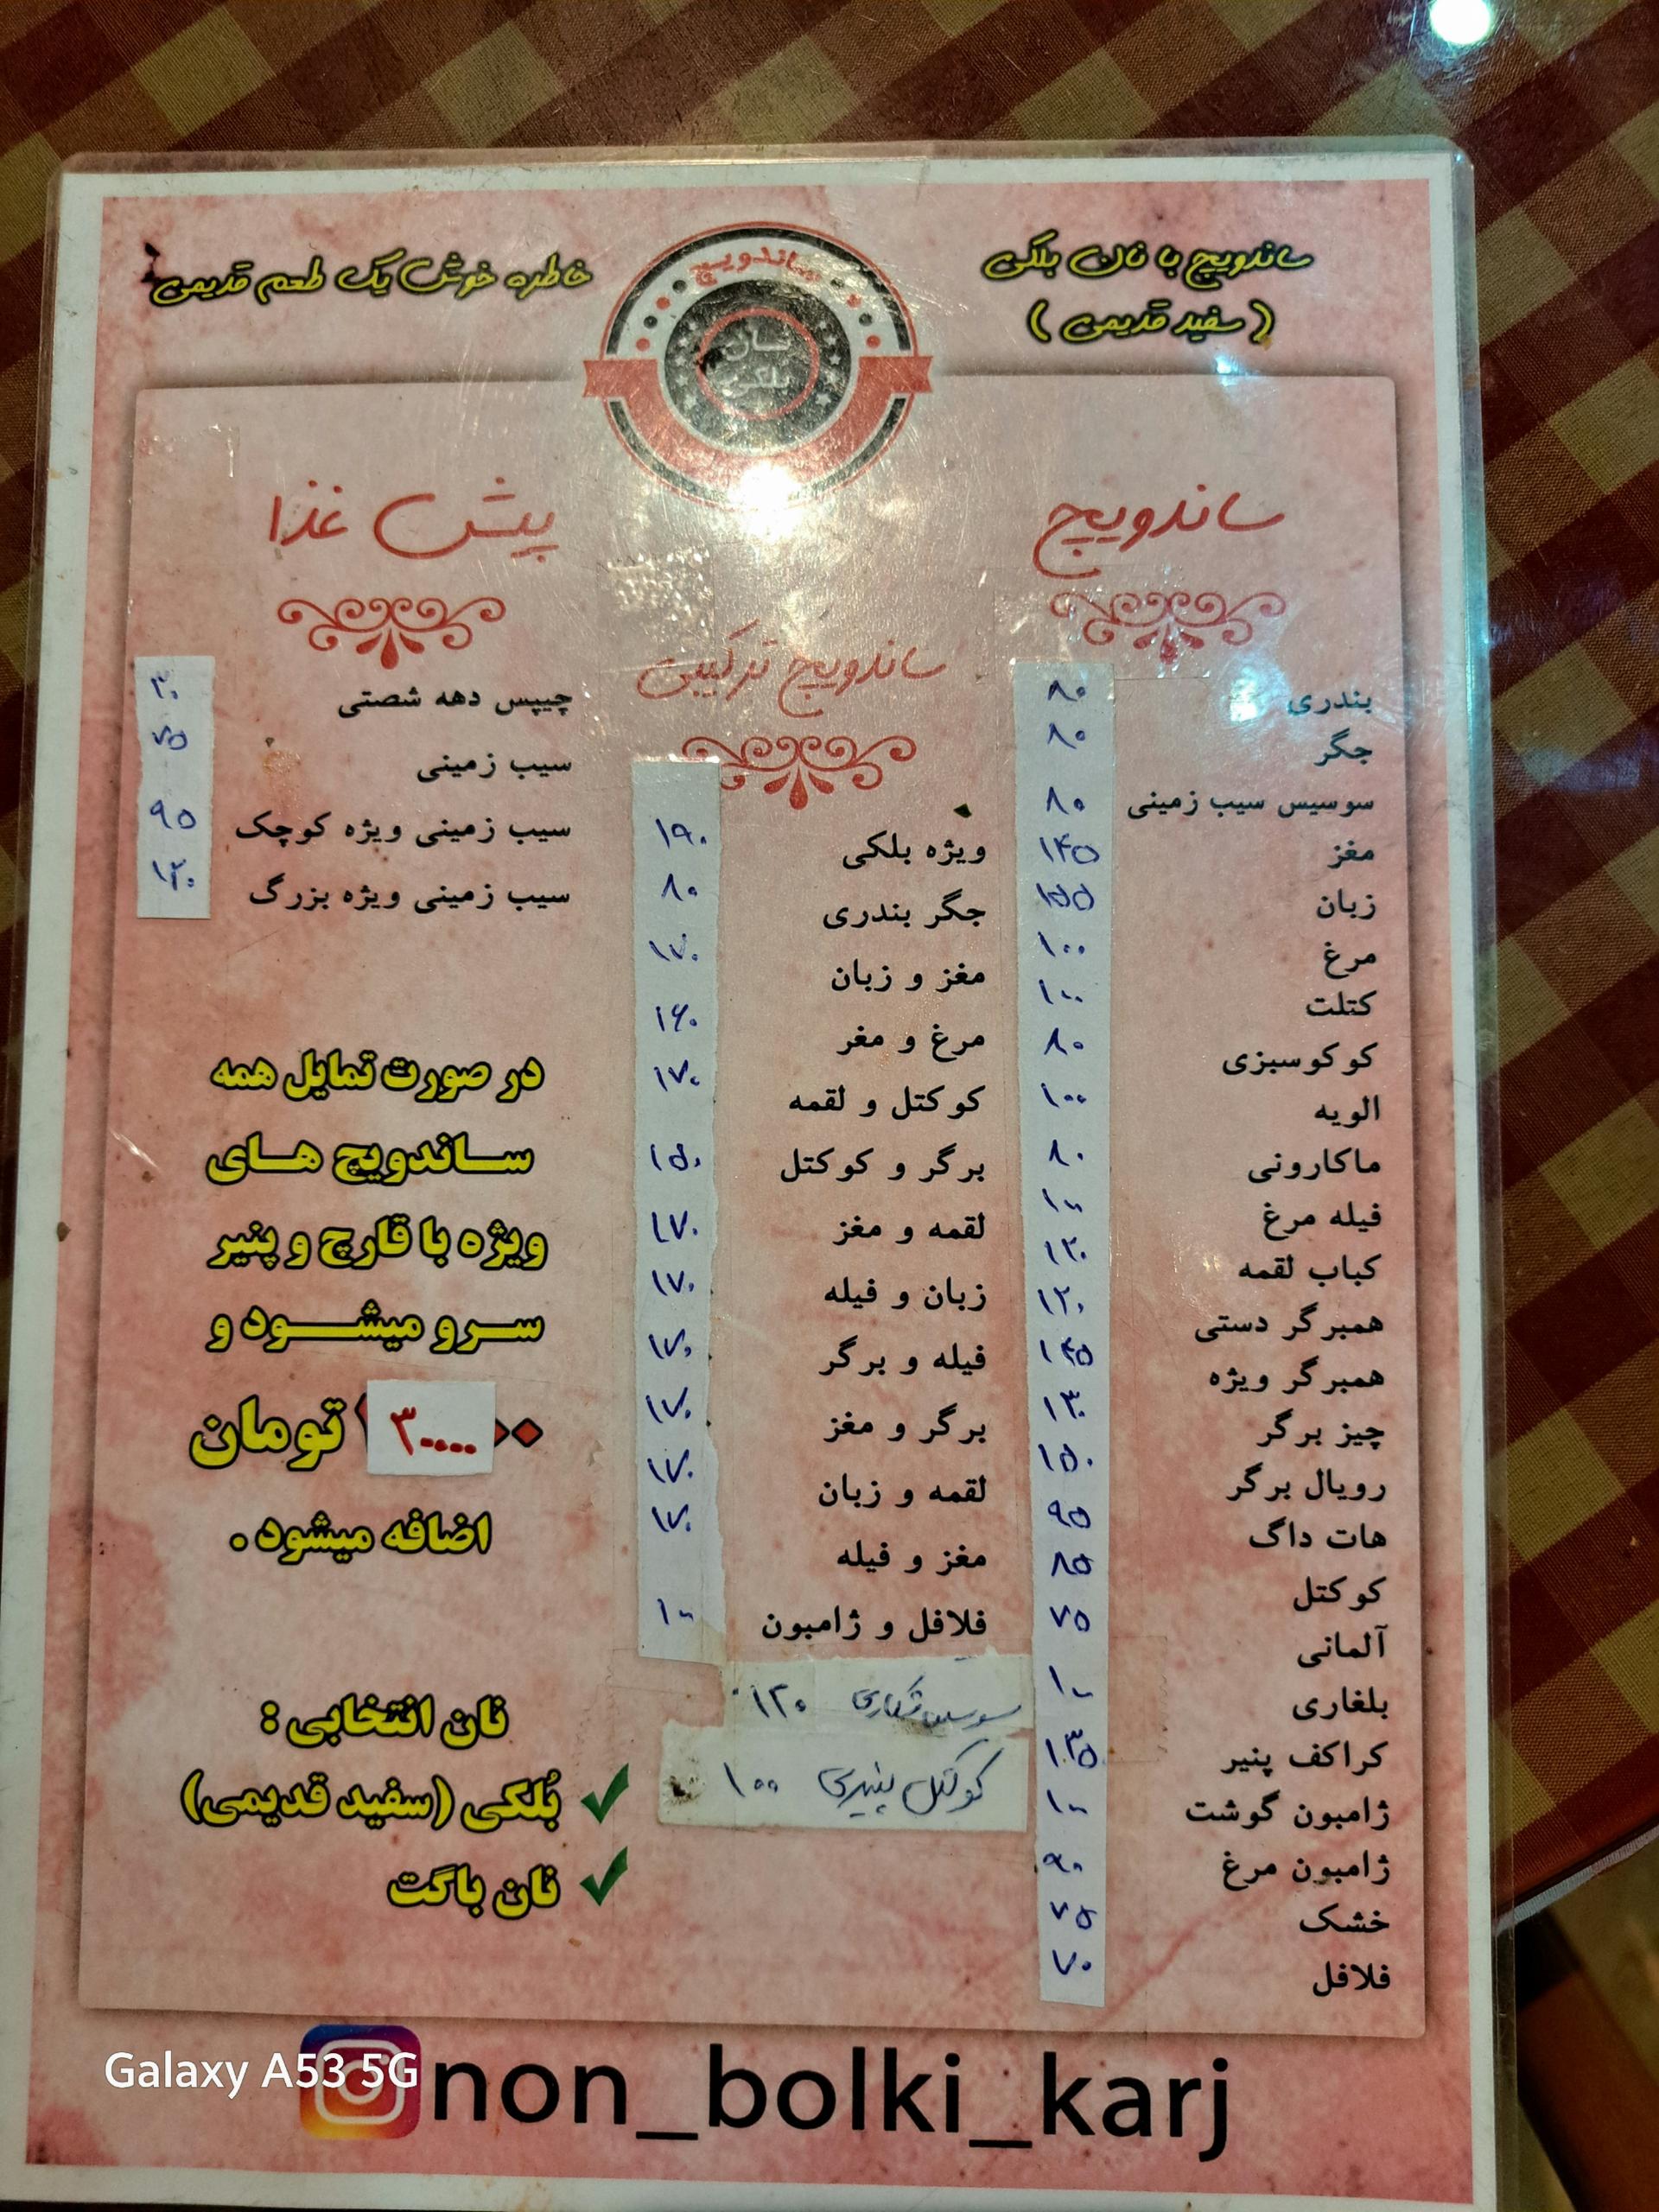 ساندویچ با نان بلکی
(سفید قدیمی)
ساندویچ
نان
بلکی
خاطره خوش یک طعم قدیمی
ساندویچ
بندری ۸۰
جگر ۸۰
سوسیس سیب زمینی ۸۰
مغز ۱۴۵
زبان ۱۵۵
مرغ ۱۰۰
کتلت ۱۰۰
کوکوسبزی ۸۰
الویه ۱۰۰
ماکارونی ۸۰
فیله مرغ ۱۰۰
کباب لقمه ۱۲۰
همبرگر دستی ۱۲۰
همبرگر ویژه ۱۴۵
چیز برگر ۱۳۰
رویال برگر ۱۵۰
هات داگ ۹۵
کوکتل ۸۵
آلمانی ۷۵
بلغاری ۱۰۰
کراکف پنیر ۱۳۵
ژامبون گوشت ۱۰۰
ژامبون مرغ ۹۰
خشک ۷۵
فلافل ۷۰
ساندویچ ترکیبی
ویژه بلکی ۱۹۰
جگر بندری ۸۰
مغز و زبان ۱۷۰
مرغ و مغر ۱۶۰
کوکتل و لقمه ۱۷۰
برگر و کوکتل ۱۵۰
لقمه و مغز ۱۷۰
زبان و فیله ۱۷۰
فیله و برگر ۱۷۰
برگر و مغز ۱۷۰
لقمه و زبان ۱۷۰
مغز و فیله ۱۷۰
فلافل و ژامبون ۱۰۰
سوسیس شکاری ۱۲۰
کوکتل پنیری ۱۰۰
پیش غذا
چیپس دهه شصتی ۳۰
سیب زمینی ۷۵
سیب زمینی ویژه کوچک ۹۵
سیب زمینی ویژه بزرگ ۱۲۰
در صورت تمایل همه
ساندویچ های
ویژه با قارچ و پنیر
سرو میشود و
۳۰۰۰۰ تومان
اضافه میشود .
نان انتخابی :
✓ بُلکی (سفید قدیمی)
✓ نان باگت
non_bolki_karj
Galaxy A53 5G